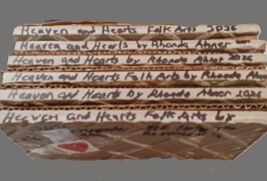 Heaven and Hearts Folk Arts 2026
Heaven and Hearts by Rhonda Abner 2026
Heaven and Hearts by Rhonda Abner 2026
Heaven and Hearts Folk Arts by Rhonda Abner
Heaven and Hearts by Rhonda Abner 2026
Heaven and Hearts Folk Arts by